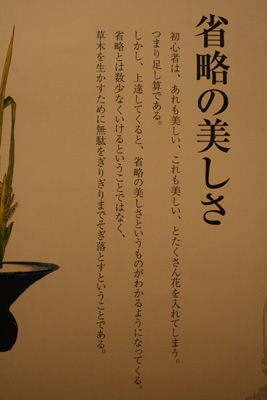 省略の美しさ
初心者は、あれも美しい、これも美しい、とたくさん花を入れてしまう。
つまり足し算である。
しかし、上達してくると、省略の美しさというものがわかるようになってくる。
省略とは数少なくいけるということではなく、
草木を生かすために無駄をぎりぎりまでそぎ落とすということである。